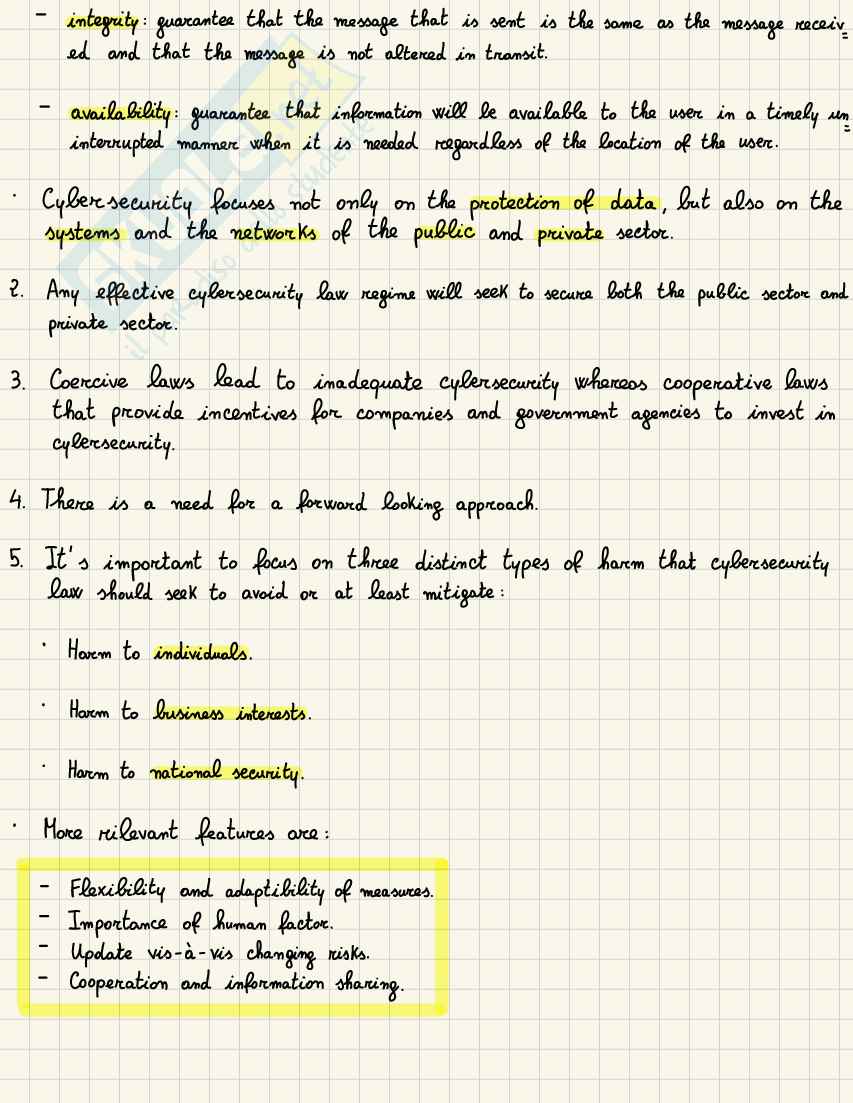 - integrity: guarantee that the message that is sent is the same as the message receiv=
ed and that the message is not altered in transit.
- availability: guarantee that information will be available to the user in a timely un=
interrupted manner when it is needed regardless of the location of the user.
· Cybersecurity focuses not only on the protection of data, but also on the
systems and the networks of the public and private sector.
2. Any effective cybersecurity law regime will seek to secure both the public sector and
private sector.
3. Coercive laws lead to inadequate cybersecurity whereas cooperative laws
that provide incentives for companies and government agencies to invest in
cybersecurity.
4. There is a need for a forward looking approach.
5. It's important to focus on three distinct types of harm that cybersecurity
law should seek to avoid or at least mitigate:
· Harm to individuals.
· Harm to business interests.
· Harm to national security.
· More rilevant features are:
- Flexibility and adaptibility of measures.
- Importance of human factor.
- Update vis-à-vis changing risks.
- Cooperation and information sharing.
SKUOLA.net
il paradiso dello studente